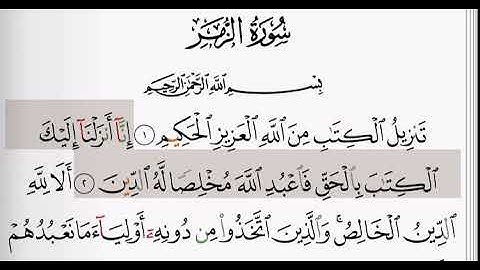 سُورَةُ الزُّمَرِ
بِسْمِ اللَّهِ الرَّحْمَٰنِ الرَّحِيمِ
تَنزِيلُ الْكِتَٰبِ مِنَ اللَّهِ الْعَزِيزِ الْحَكِيمِ ١ إِنَّآ أَنزَلْنَآ إِلَيْكَ
الْكِتَٰبَ بِالْحَقِّ فَاعْبُدِ اللَّهَ مُخْلِصًا لَّهُ الدِّينَ ٢ أَلَا لِلَّهِ
الدِّينُ الْخَالِصُ ۚ وَالَّذِينَ اتَّخَذُوا مِن دُونِهِۦٓ أَوْلِيَآءَ مَا نَعْبُدُهُمْ